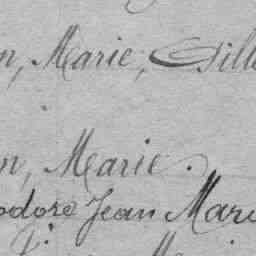 n, Marie, Gill
n, Marie.
odore Jean Mari